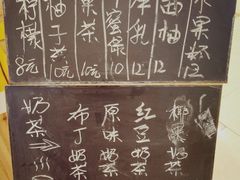 柠檬 8元
柚子茶 10元
果茶 10元
蜜 10
乳 12
西柚 12
水果杯 12
奶茶
布丁奶茶
原味奶茶
红豆奶茶
椰果奶茶